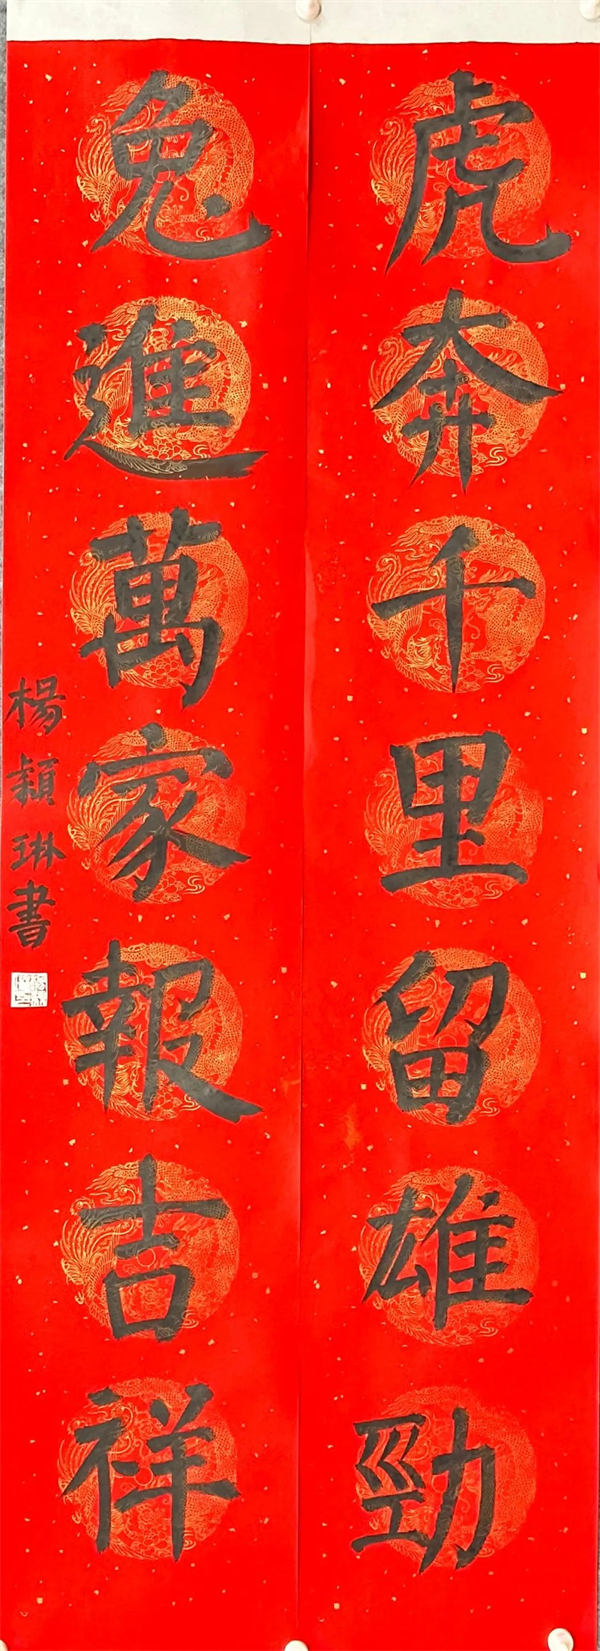 虎奔千里留雄勁
兔進萬家報吉祥
楊穎琳書